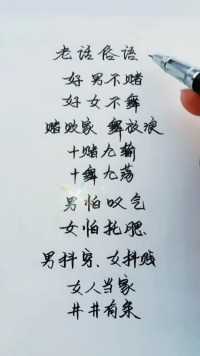 老话俗语
好男不赌
好女不舞
赌败家 舞放浪
十赌九输
十舞九荡
男怕叹气
女怕托腮
男抖穷,女抖贱
女人当家
井井有条